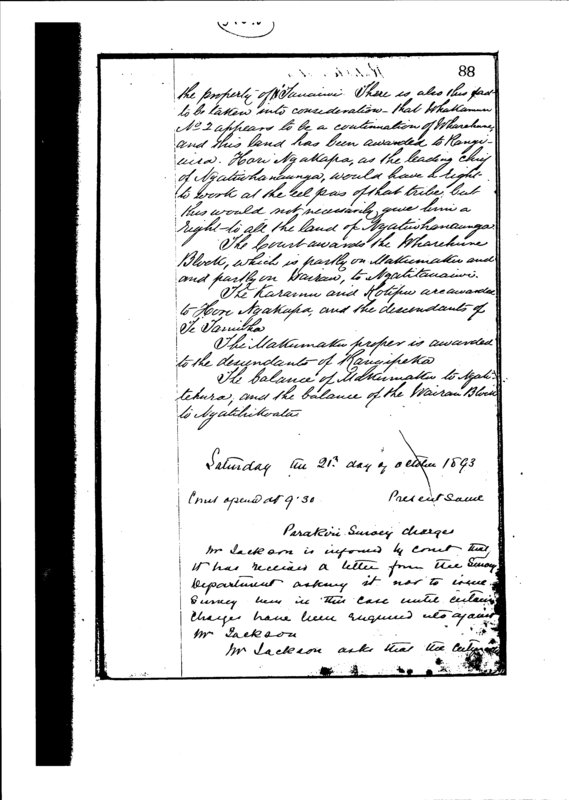 88
the property of N'Tamaiwi There is also this fact
to be taken into consideration - that Whakamaru
No 2 appears to be a continuation of Wharehine,
and this land has been awarded to Rangi-
wia. Hori Ngakapa, as the leading chief
of Ngatiwhanaunga, would have a right
to work at the eel pas of that tribe, but
this would not necessarily give him a
right to all the land of Ngatiwhanaunga
The Court awards the Wharehine
Block, which is partly on Makumaku and
and partly on Wairau, to Ngatitamaiwi.
The Karamu and Kotipu are awarded
to Hori Ngakapa, and the descendants of
Te Tanuiha
The Makumaku proper is awarded
to the descendants of Rangipeka
The balance of Makumaku to Ngati-
tekura, and the balance of the Wairau Block
to
Saturday the 21st day of October 1893
Court opened at 9.30 Present Same
Parakiri Survey charges
Mr Jackson is informed by Court that
it has received a letter from the Survey
Department asking it not to issue
Survey lien in this case until certain
charges have been enquired into against
Mr Jackson
Mr Jackson asks that the